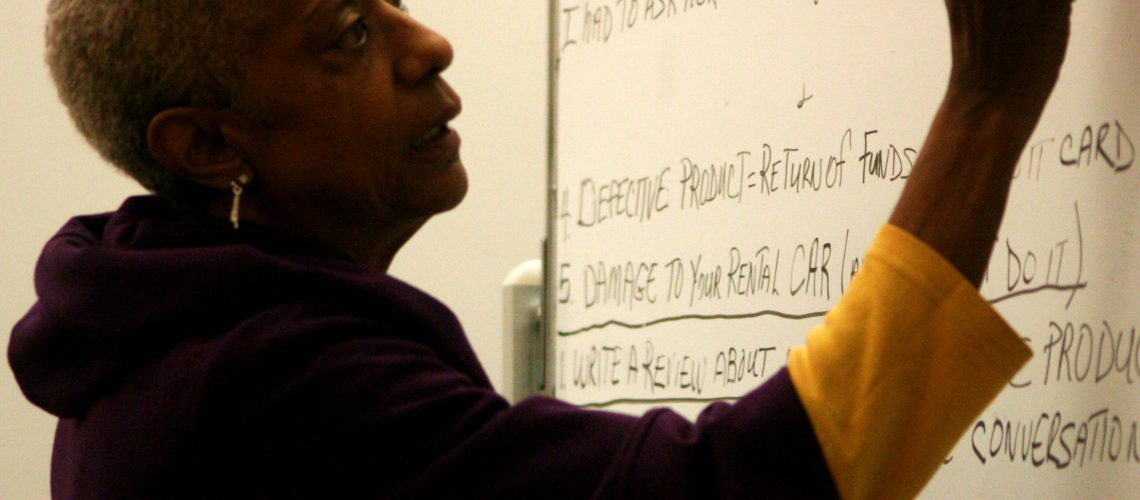 I HAD TO ASK HER
4. DEFECTIVE PRODUCT = RETURN OF FUNDS CARD
5. DAMAGE TO YOUR RENTAL CAR ( DO IT)
1. WRITE A REVIEW ABOUT PRODUC
CONVERSATION